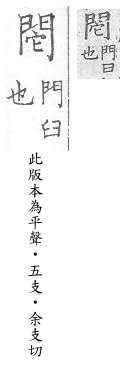 門日
也
門臼
也
此版本為平聲・五支・余支切